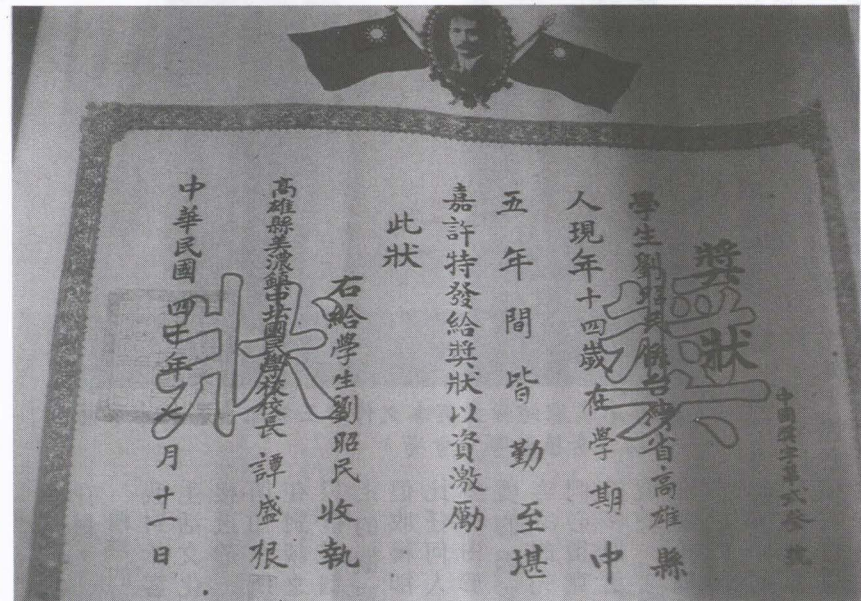 獎狀
中國獎字第弍叁號
學生劉昭民係台灣省高雄縣
人現年十四歲在學期中
五年間皆勤至堪
嘉許特發給獎狀以資激勵
此狀
右給學生劉昭民收執
高雄縣美濃鎮中坛國民學校校長譚盛根
中華民國四十年七月十一日
獎狀